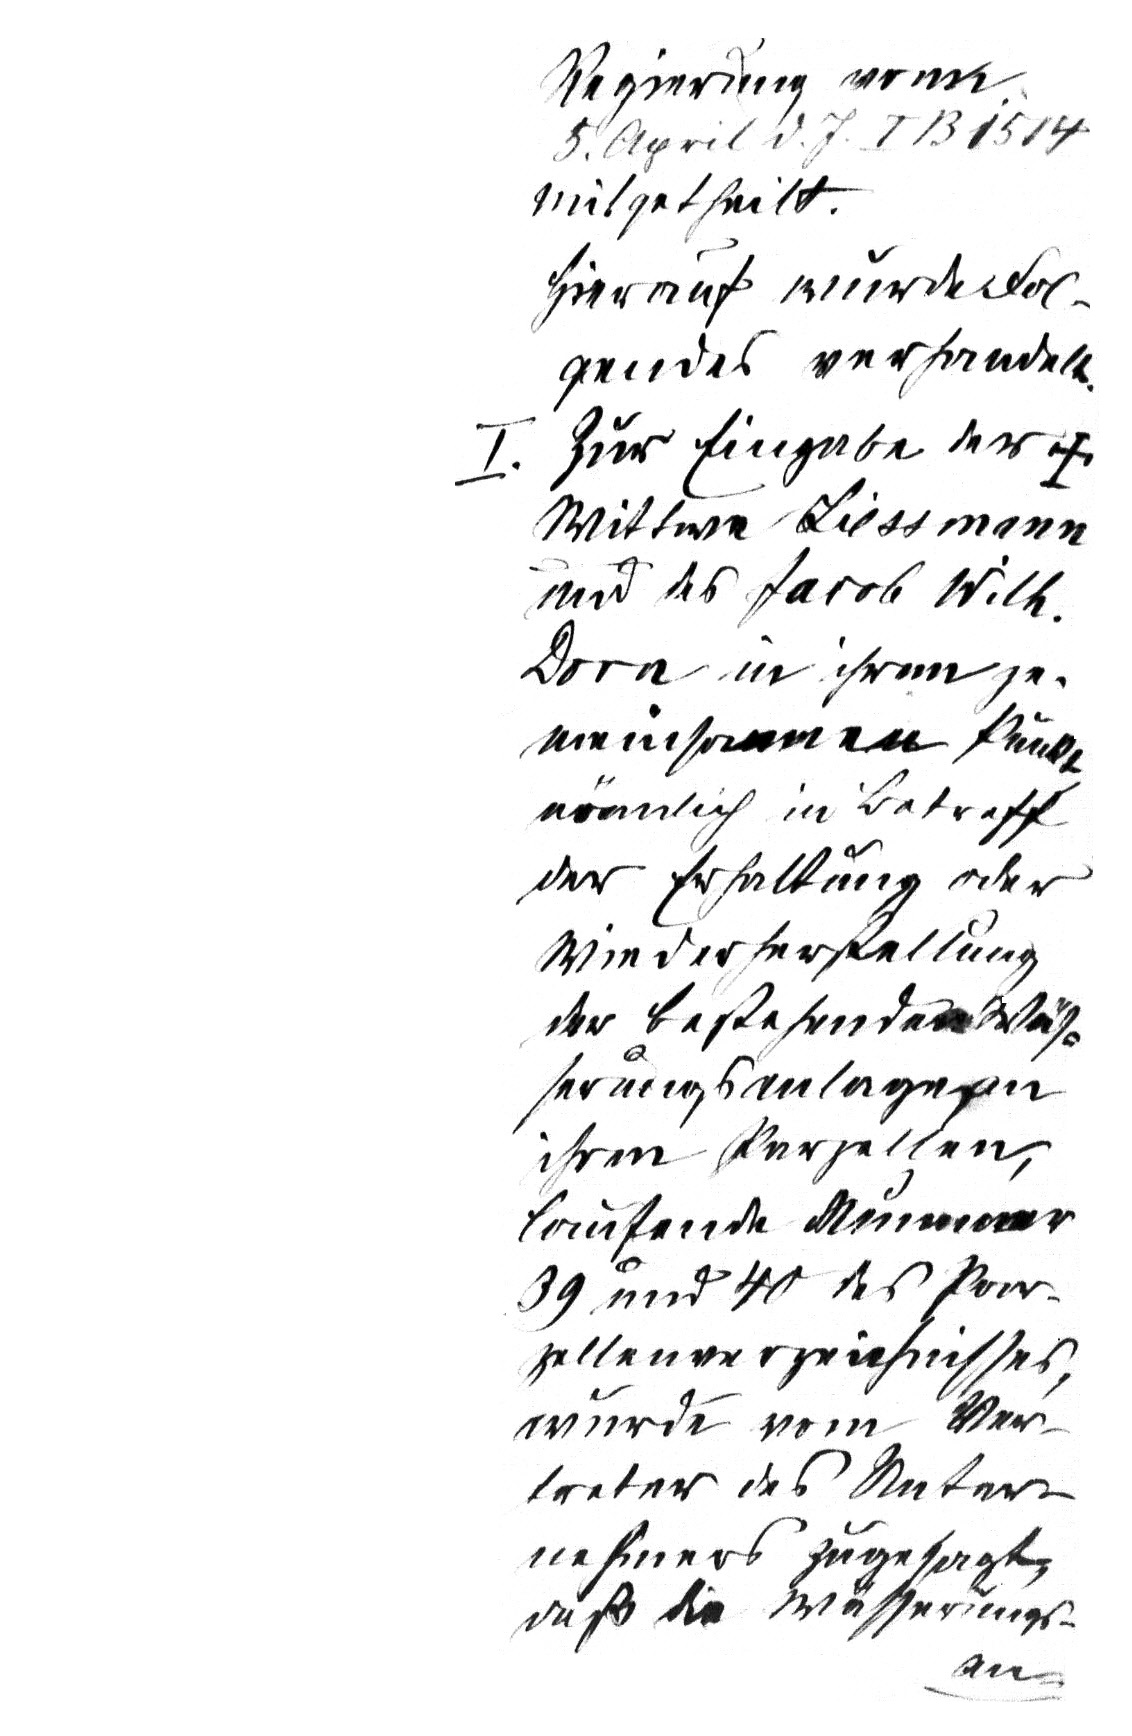 Regierung vom
5. April d. J. I B 1514
mitgetheilt.
Hierauf wurde Fol-
gendes verhandelt.
I. Zur Eingabe der
Wittwe Liessmann
und des Jacob Wilh.
Dorn in ihrem ge-
meinsamen Punkt
nämlich in Betreff
der Erhaltung oder
Wiederherstellung
der bestehenden Wäs-
serungsanlagen
ihren Parzellen,
laufende Nummer
39 und 40 des Par-
zellenverzeichnisses,
wurde vom Ver-
treter des Unter-
nehmers zugesagt,
daß die Wässerungs-
an-